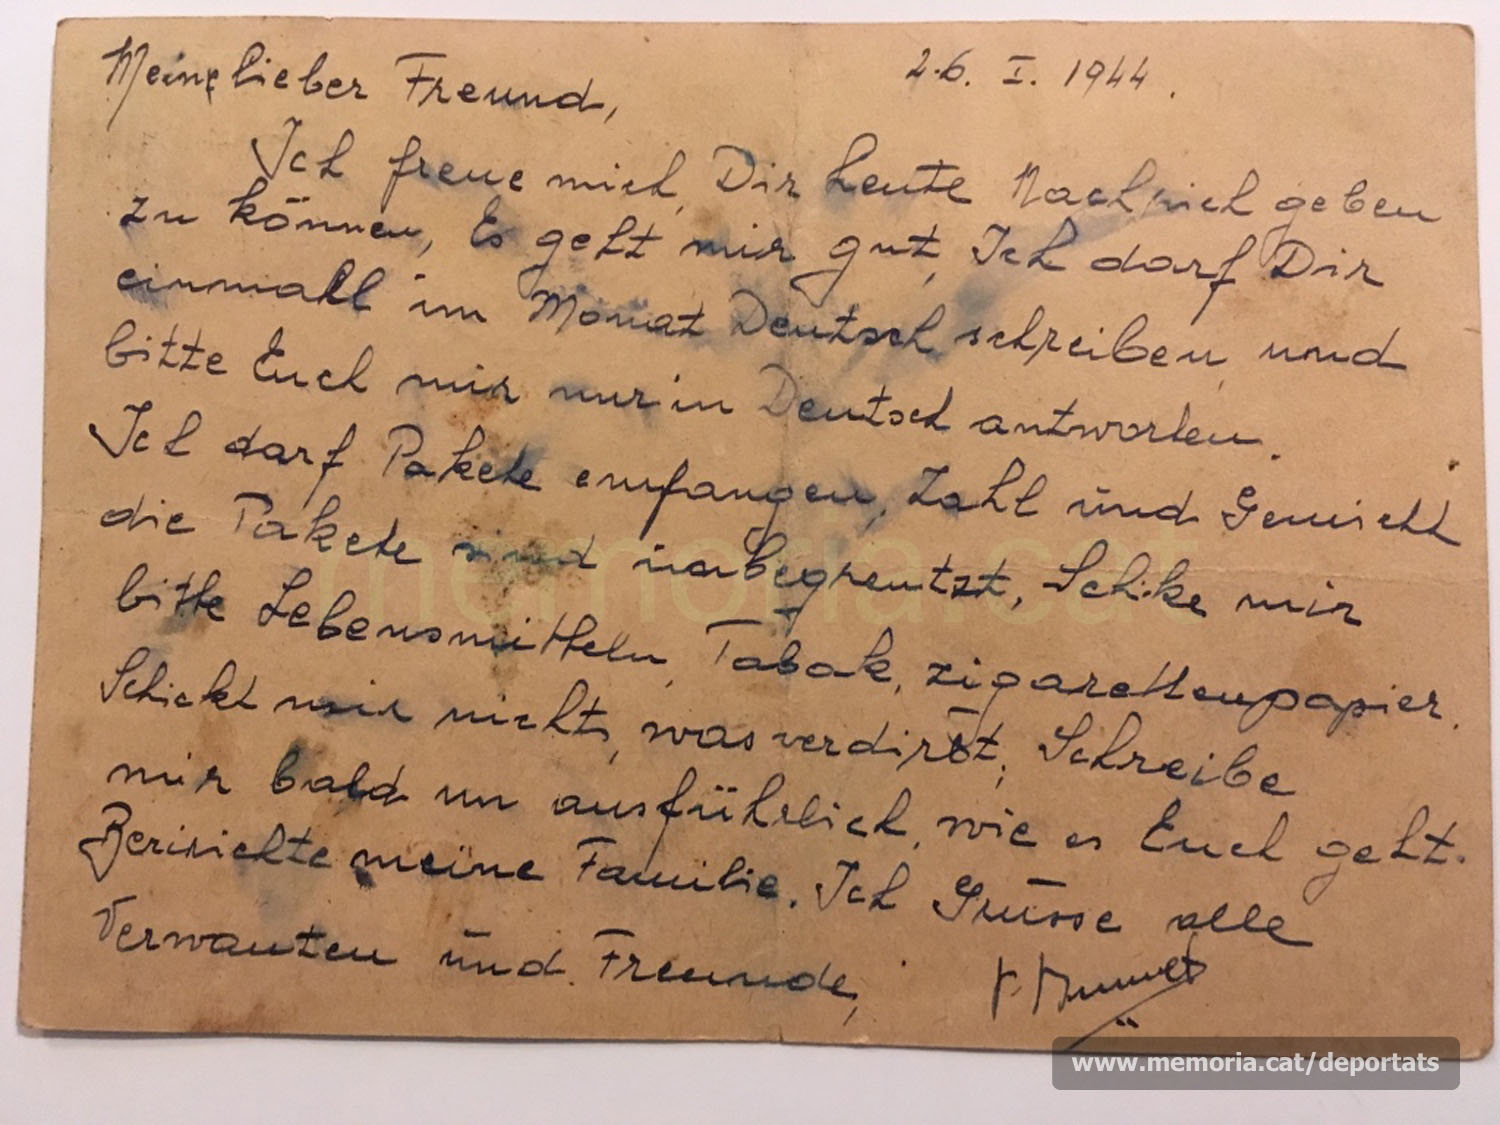 Meine lieber Freund,
26. I. 1944.
Ich freue mich, Dir heute Nachrich geben
zu können, Es geht mir gut, Ich darf Dir
einmahl im Monat Deutsch schreiben, und
bitte Euch mir nur in Deutsch antworten.
Ich darf Pakete empfangen, Zahl und
die Pakete sind unbegrentzt, Schike mir
bitte Lebensmitteln, Tabak, zigarettenpapier.
Schickt mir nichts, was verdirbt; Schreibe
mir bald un ausführlich, wie es Euch geht.
meine Familie. Ich Grüsse alle
Verwanten und Freunde,
memoria.cat
www.memoria.cat/deportats